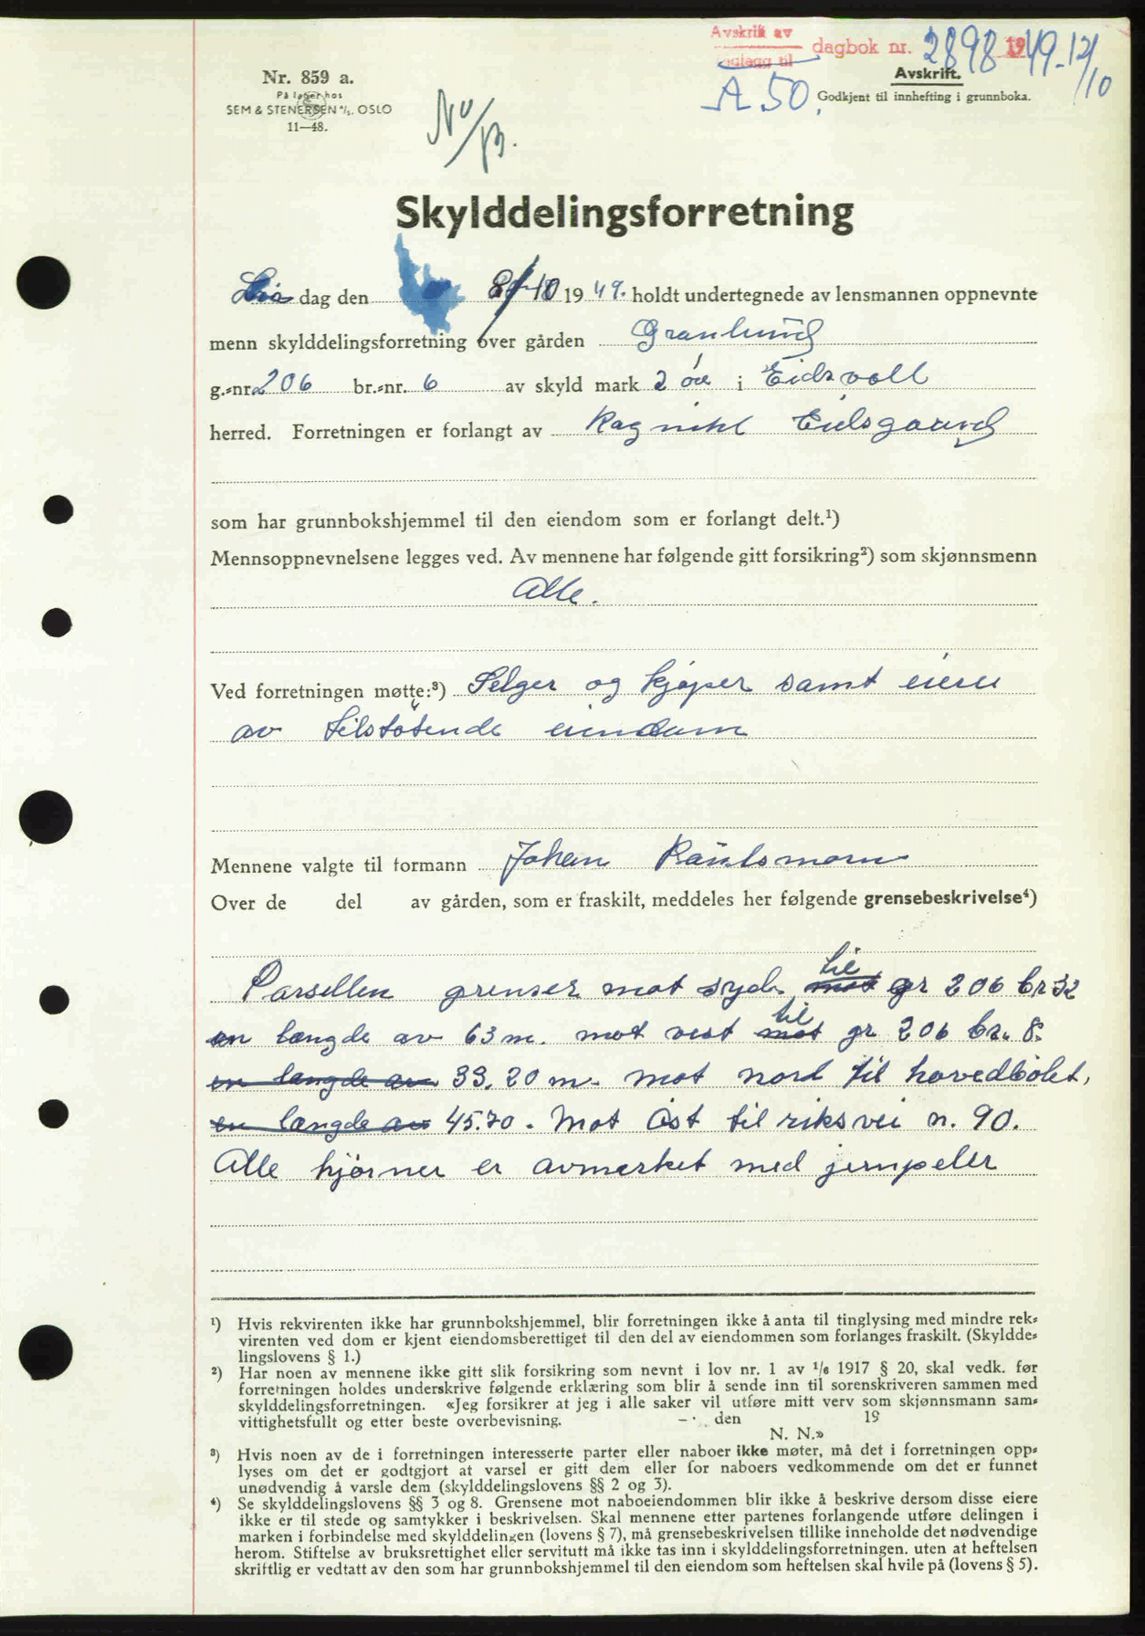 Avskrift av dagbok nr. 2898 1949-12/10
Nr. 859 a.
På lager hos
SEM & STENERSEN A/S. OSLO
11—48.
Avskrift.
A 50. Godkjent til innhefting i grunnboka.
No/13.
Skylddelingsforretning
dag den 8/10 1949. holdt undertegnede av lensmannen oppnevnte
menn skylddelingsforretning over gården Granlund
g.=nr. 206 br.=nr. 6 av skyld mark 2 øre i Eidsvoll
herred. Forretningen er forlangt av Ragnhild Eidsgaard
som har grunnbokshjemmel til den eiendom som er forlangt delt.¹)
Mennsoppnevnelsene legges ved. Av mennene har følgende gitt forsikring²) som skjønnsmenn
Alle.
Ved forretningen møtte:³) Selger og kjøper samt eiere
av tilstøtende eiendom
Mennene valgte til formann Johan
Over de del av gården, som er fraskilt, meddeles her følgende grensebeskrivelse⁴)
Parsellen grenser mot syd til mot gr 206 br 32
en længde av 63 m. mot vest til mot gr 206 br. 8.
en længde av 33.20 m. mot nord til hovedbølet,
en længde av 45.70. Mot Øst til riksvei n. 90.
Alle hjørner er avmerket med jernpeler
¹) Hvis rekvirenten ikke har grunnbokshjemmel, blir forretningen ikke å anta til tinglysing med mindre rek=
virenten ved dom er kjent eiendomsberettiget til den del av eiendommen som forlanges fraskilt. (Skyldde=
lingslovens § 1.)
²) Har noen av mennene ikke gitt slik forsikring som nevnt i lov nr. 1 av ¹/₆ 1917 § 20, skal vedk. før
forretningen holdes underskrive følgende erklæring som blir å sende inn til sorenskriveren sammen med
skylddelingsforretningen. «Jeg forsikrer at jeg i alle saker vil utføre mitt verv som skjønnsmann sam=
vittighetsfullt og etter beste overbevisning. den 19
N. N.»
³) Hvis noen av de i forretningen interesserte parter eller naboer ikke møter, må det i forretningen opp=
lyses om det er godtgjort at varsel er gitt dem eller for naboers vedkommende om det er funnet
unødvendig å varsle dem (skylddelingslovens §§ 2 og 3).
⁴) Se skylddelingslovens §§ 3 og 8. Grensene mot naboeiendommen blir ikke å beskrive dersom disse eiere
ikke er til stede og samtykker i beskrivelsen. Skal mennene etter partenes forlangende utføre delingen i
marken i forbindelse med skylddelingen (lovens § 7), må grensebeskrivelsen tillike inneholde det nødvendige
herom. Stiftelse av bruksrettighet eller servitutt må ikke tas inn i skylddelingsforretningen. uten at heftelsen
skriftlig er vedtatt av den som har grunnbokshjemmel til den eiendom som heftelsen skal hvile på (lovens § 5).